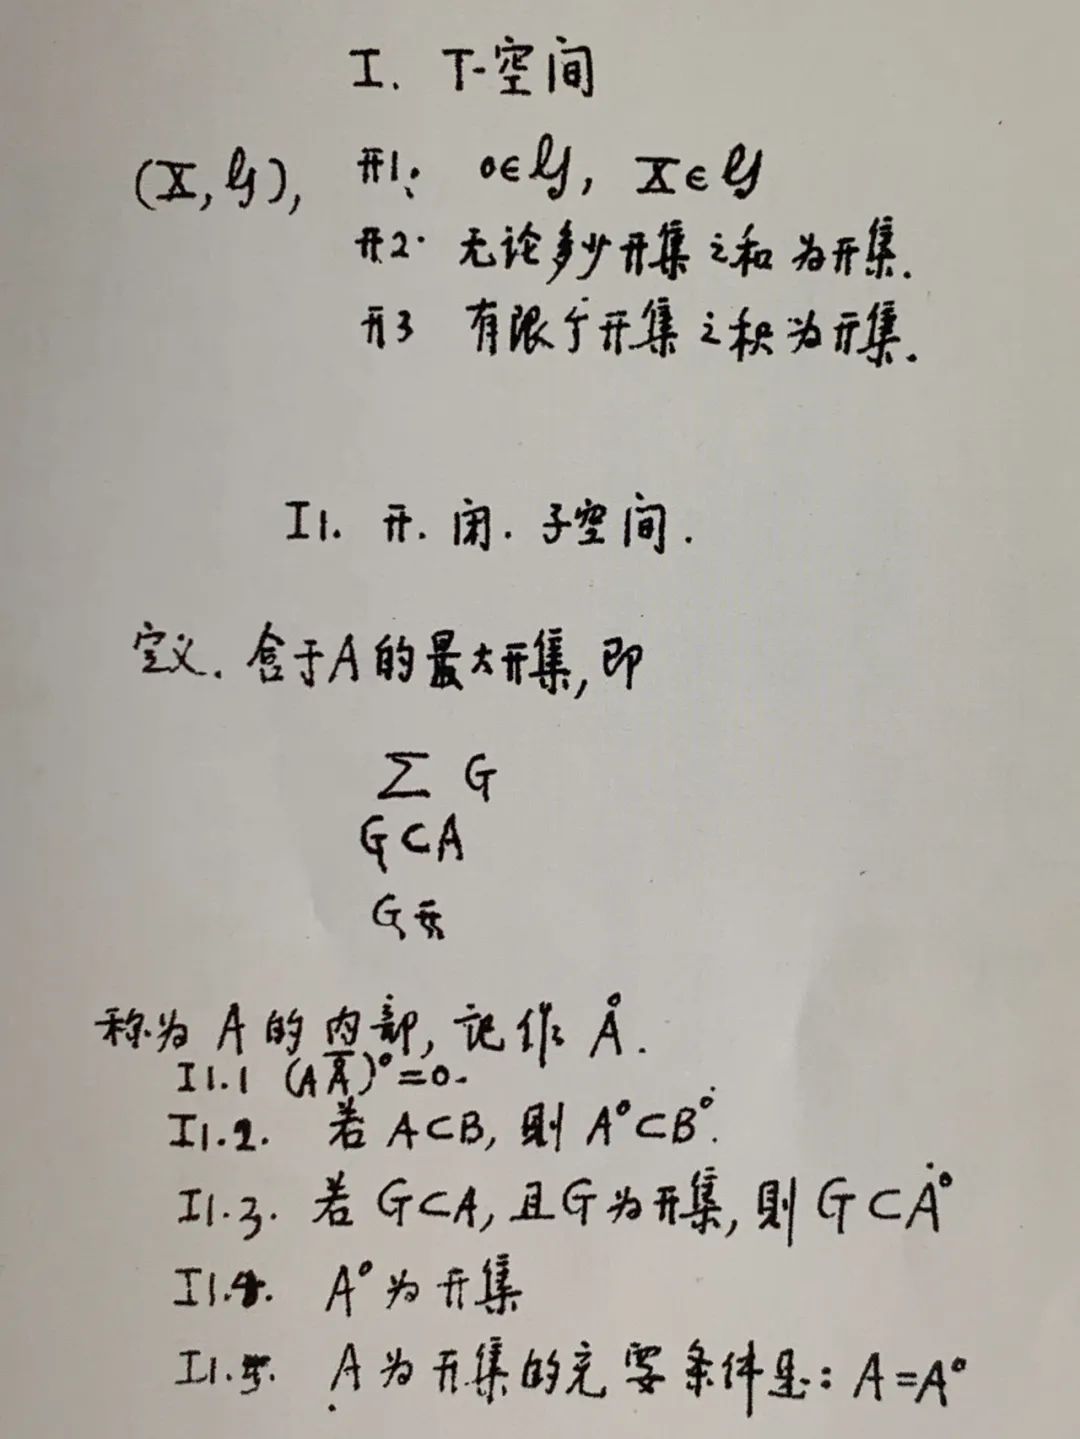 I. T-空间
(X, 𝒢), 开1: 0∈𝒢, X∈𝒢
开2. 无论多少开集之和为开集.
开3 有限个开集之积为开集.
I1. 开. 闭. 子空间.
定义. 含于A的最大开集, 即
∑ G
G⊂A
G开
称为A的内部, 记作 Å.
I1.1 (AA̅)°=0.
I1.2. 若 A⊂B, 则 A°⊂B°.
I1.3. 若 G⊂A, 且G为开集, 则 G⊂A°
I1.4. A°为开集
I1.5. A为开集的充要条件是: A=A°